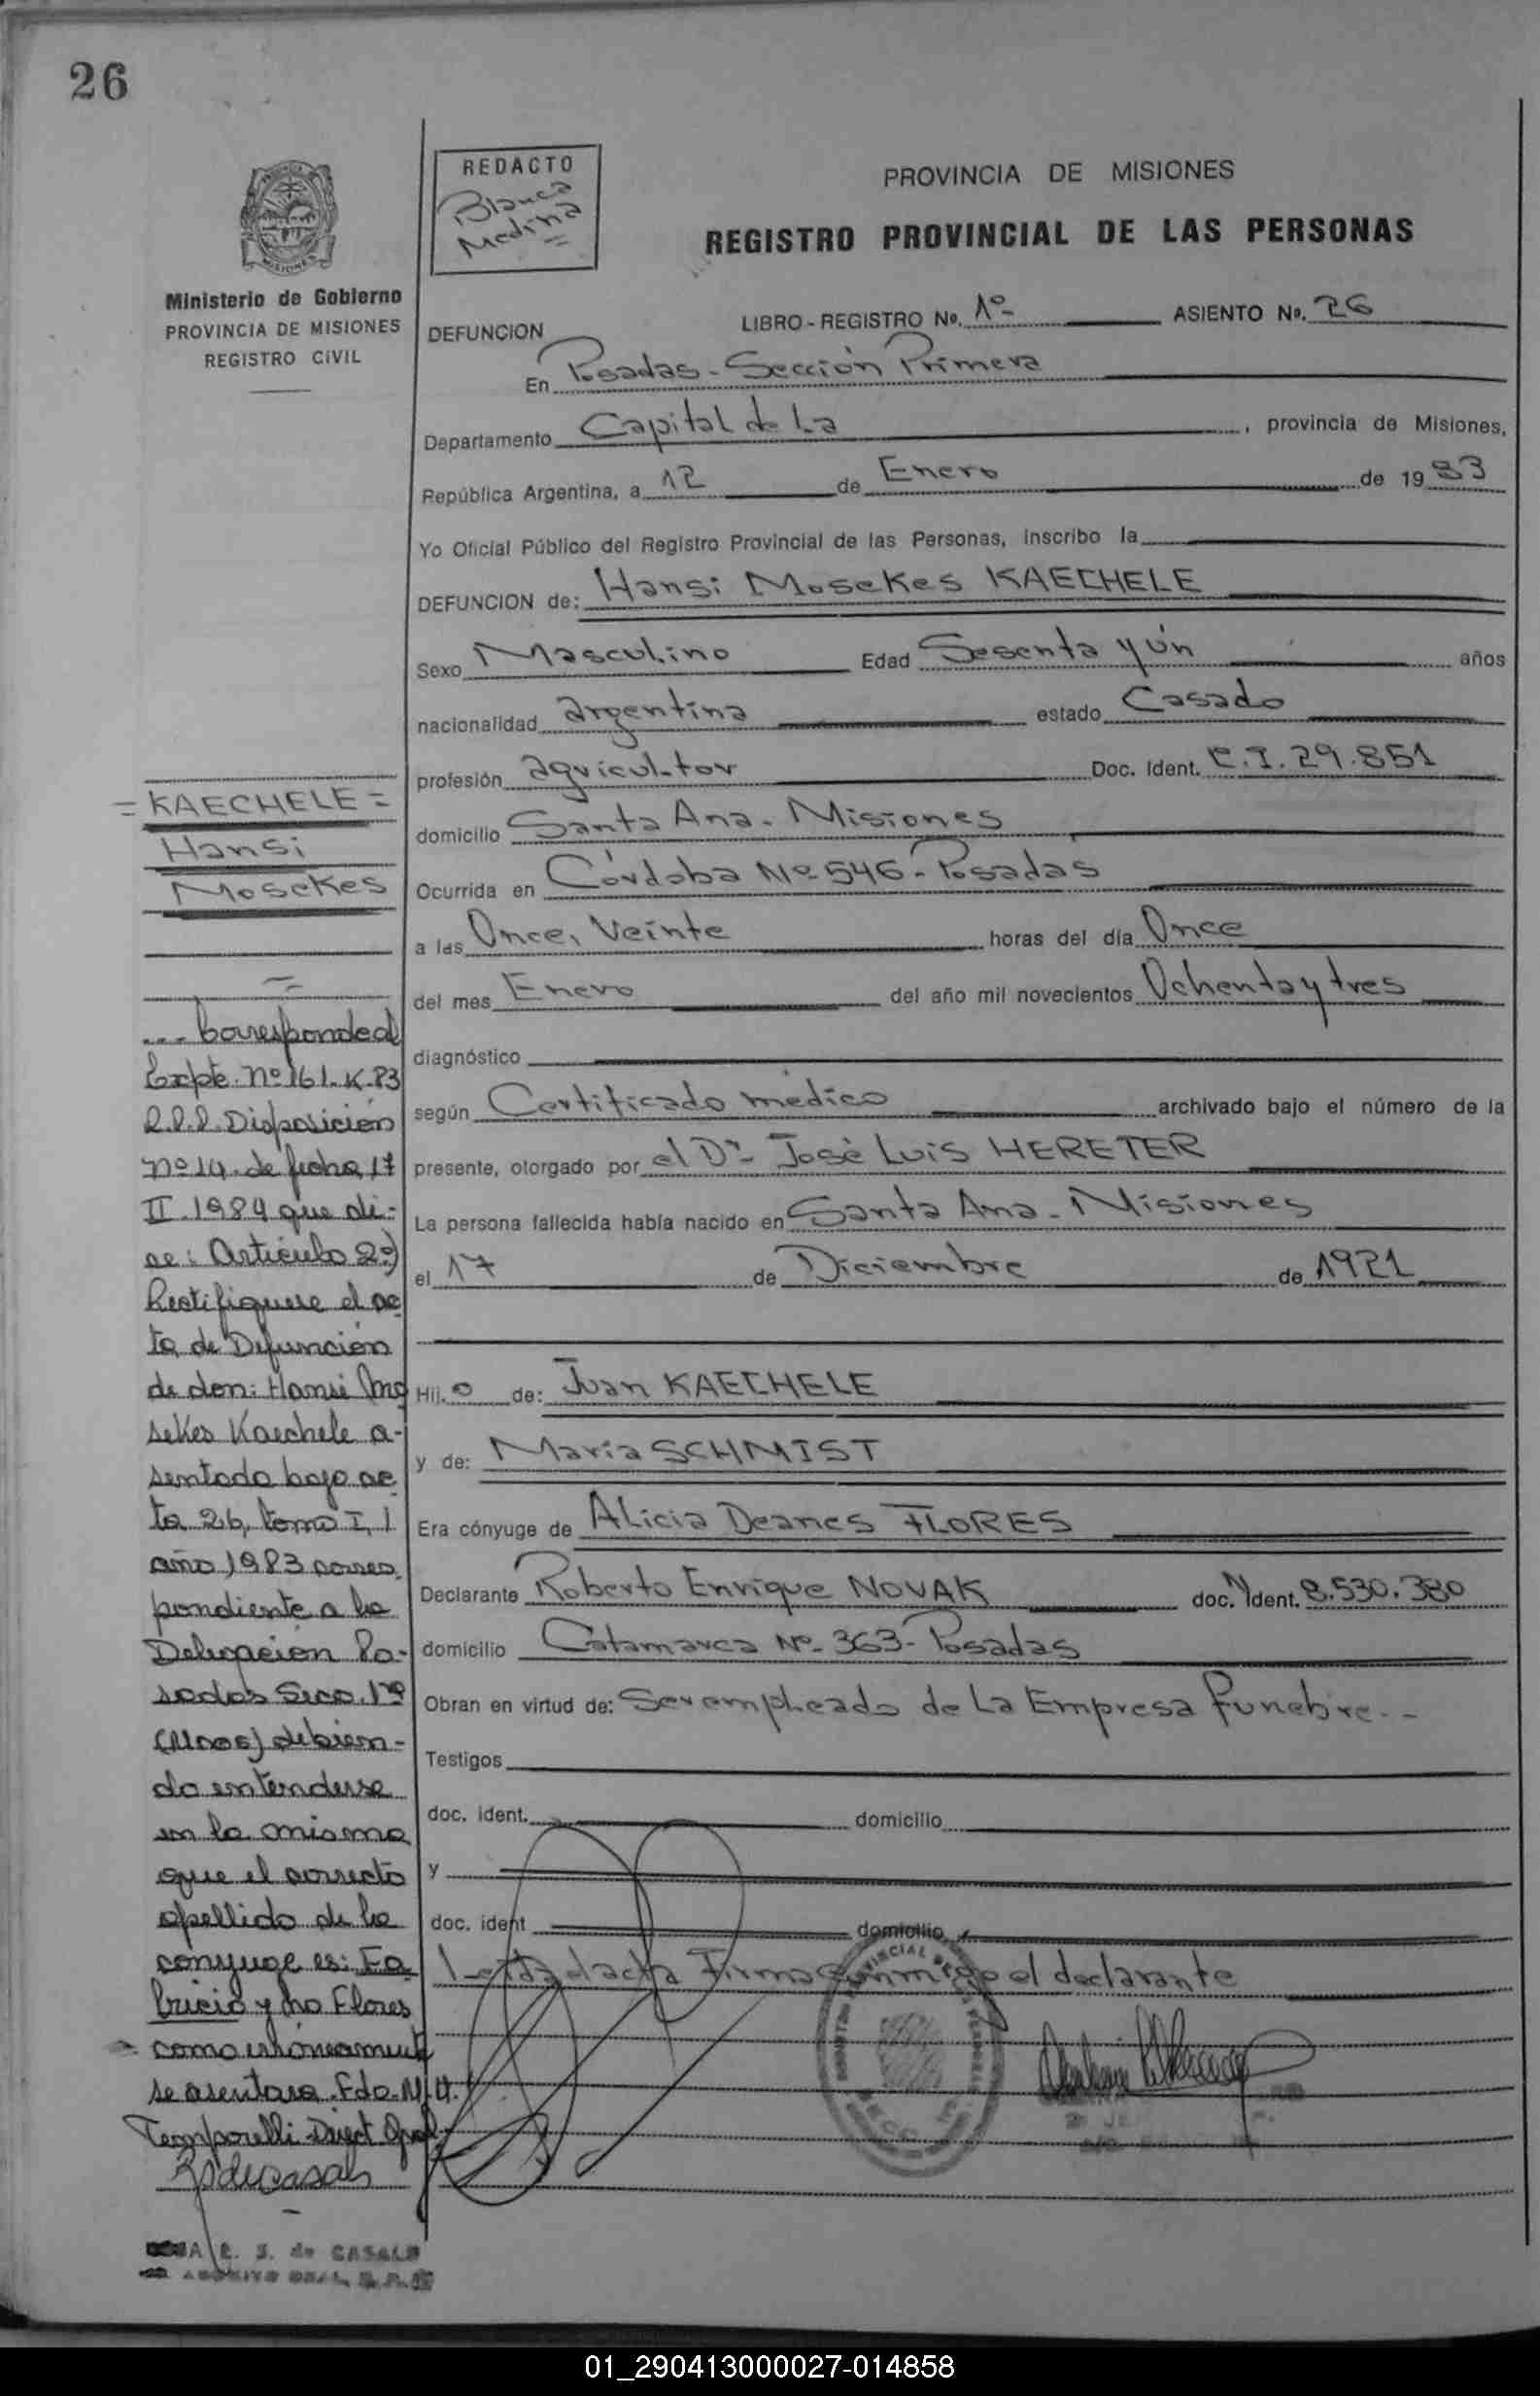 26
REDACTO
Blanca
Medina
Ministerio de Gobierno
PROVINCIA DE MISIONES
REGISTRO CIVIL
PROVINCIA DE MISIONES
REGISTRO PROVINCIAL DE LAS PERSONAS
DEFUNCION LIBRO - REGISTRO Nº. 1º- ASIENTO Nº. 26
En Posadas - Sección Primera
Departamento Capital de La , provincia de Misiones,
República Argentina, a 12 de Enero de 1983
Yo Oficial Público del Registro Provincial de las Personas, inscribo la
DEFUNCION de: Hansi Mosekes KAECHELE
Sexo Masculino Edad Sesenta y ún años
nacionalidad argentina estado Casado
profesión agricultor Doc. Ident. C.I. 29.851
domicilio Santa Ana - Misiones
Ocurrida en Córdoba Nº 546 - Posadas
a las Once, Veinte horas del día Once
del mes Enero del año mil novecientos Ochenta y tres
diagnóstico
según Certificado médico archivado bajo el número de la
presente, otorgado por el Dr. José Luis HERETER
La persona fallecida había nacido en Santa Ana - Misiones
el 17 de Diciembre de 1921
Hij.o de: Juan KAECHELE
y de: María SCHMIST
Era cónyuge de Alicia Deanes FLORES
Declarante Roberto Enrique NOVAK doc. Ident. 8.530.380
domicilio Catamarca Nº- 363 - Posadas
Obran en virtud de: Ser empleado de La Empresa funebre. -
Testigos
doc. ident. domicilio
y
doc. ident domicilio
Leída el acta Firma conmigo el declarante
= KAECHELE =
Hansi
Mosekes
... Corresponde al
Expte. Nº 161. K. 83
R.P.P. Disposición
nº 14. de fecha 17
II. 1984 que di-
ce: Artículo 2º)
Rectifiquese el ac
ta de Defunción
de don: Hansi Mo
sekes Kaechele a-
sentado bajo ac
ta 26, tomo I,
año 1983 corres
pondiente a la
Delegación Po-
sadas Secc. 1ª
(Mnes) debien-
do entenderse
en la misma
que el correcto
apellido de la
conyuge es: Fa
bricio y no Flores
como erróneamente
se asentara. Fdo. M.H.
Temporelli - Direct Gral
E. S. de CASALS
01_290413000027-014858